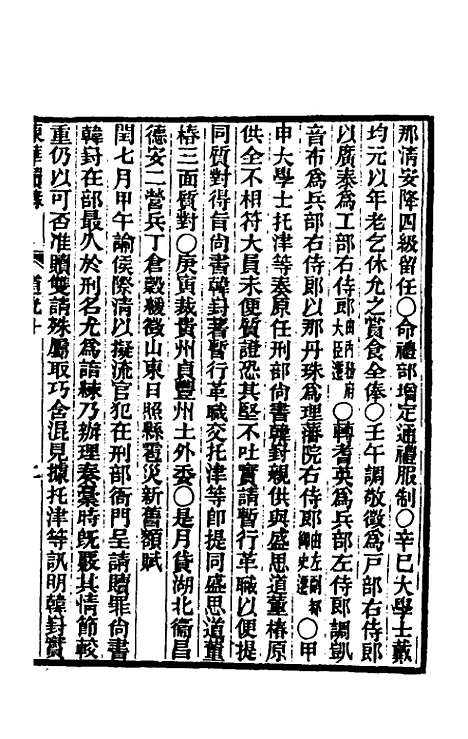 那淸安降四級留任○命禮部增定通禮服制○辛巳大學士戴
均元以年老乞休允之賞食全俸○壬午調敬徵爲戶部右侍郎
以廣泰爲工部右侍郎由內務府大臣遷○轉耆英爲兵部左侍郎調凱
音布爲兵部右侍郎以那丹珠爲理藩院右侍郎由左副都御史遷○甲
申大學士托津等奏原任刑部尙書韓崶親供與盛思道董椿原
供全不相符大員未便質證恐其堅不吐實請暫行革職以便提
同質對得旨尙書韓崶著暫行革職交托津等卽提同盛思道董
椿三面質對○庚寅裁貴州貞豐州土外委○是月貸湖北衞昌
德安二營兵丁倉穀緩徵山東日照縣雹災新舊額賦
閏七月甲午諭侯際淸以擬流官犯在刑部衙門呈請贖罪尙書
韓崶在部最久於刑名尤爲諳練乃辦理奏槀時旣嚴其情節較
重仍以可否准贖雙請殊屬取巧含混見據托津等訊明韓崶實
東華續錄　道光十